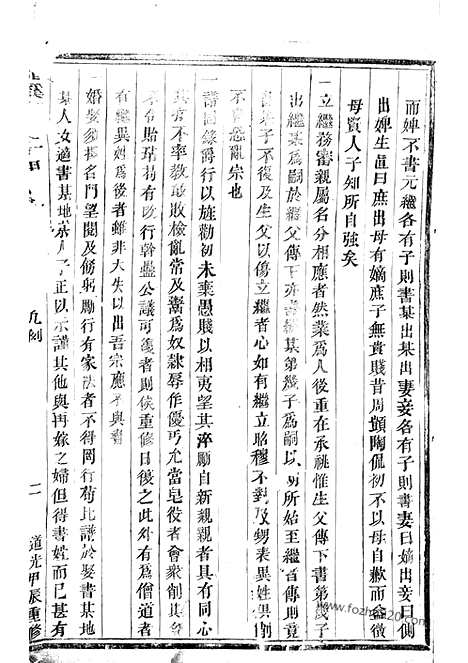 而婢不書元繼各有子則書某出某出妻妾各有子則書妻曰嫡出妾曰側
出婢生直曰庶出母有嫡庶子無貴賤昔周顗陶侃初不以母自歉而益徵
母賢人子知所自強矣
一立繼務審親屬名分相應者然業爲人後重在承祧惟生父傳下書第幾子
出繼某爲嗣於繼父傳下亦書繼某第幾子爲嗣以明所始至繼者傳則竟
自爲子不復及生父以傷立繼者心如有繼立昭穆不對及甥表異姓具削
不書恐亂宗也
一書官錄爵行以旌勸初未棄愚賤以相夷望其淬勵自新親親者具有同心
其有不率教致敗檢亂常及鬻爲奴隸辱作優丐充當皂役者會眾削其
名有貽瑞易有改行幹蠱公議可後者則俟重修日後之此外有爲僧道者
有繼異姓爲後者雖非大失以出吾宗應不與書
一婚娶必擇名門望閥及飭躬勵行有家法者不得罔行苟比謹於娶書某地
某人女適書某地某人子正以示謹其他與再嫁之婦但得書姓而已甚有
凡例
二
道光甲辰重修
www.fozhu920.com